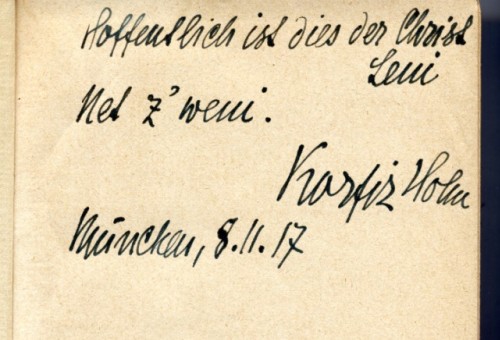 Hoffentlich ist dies der Christ
Leni
Net z' weni.
Korfiz Holm
München, 8.11.17